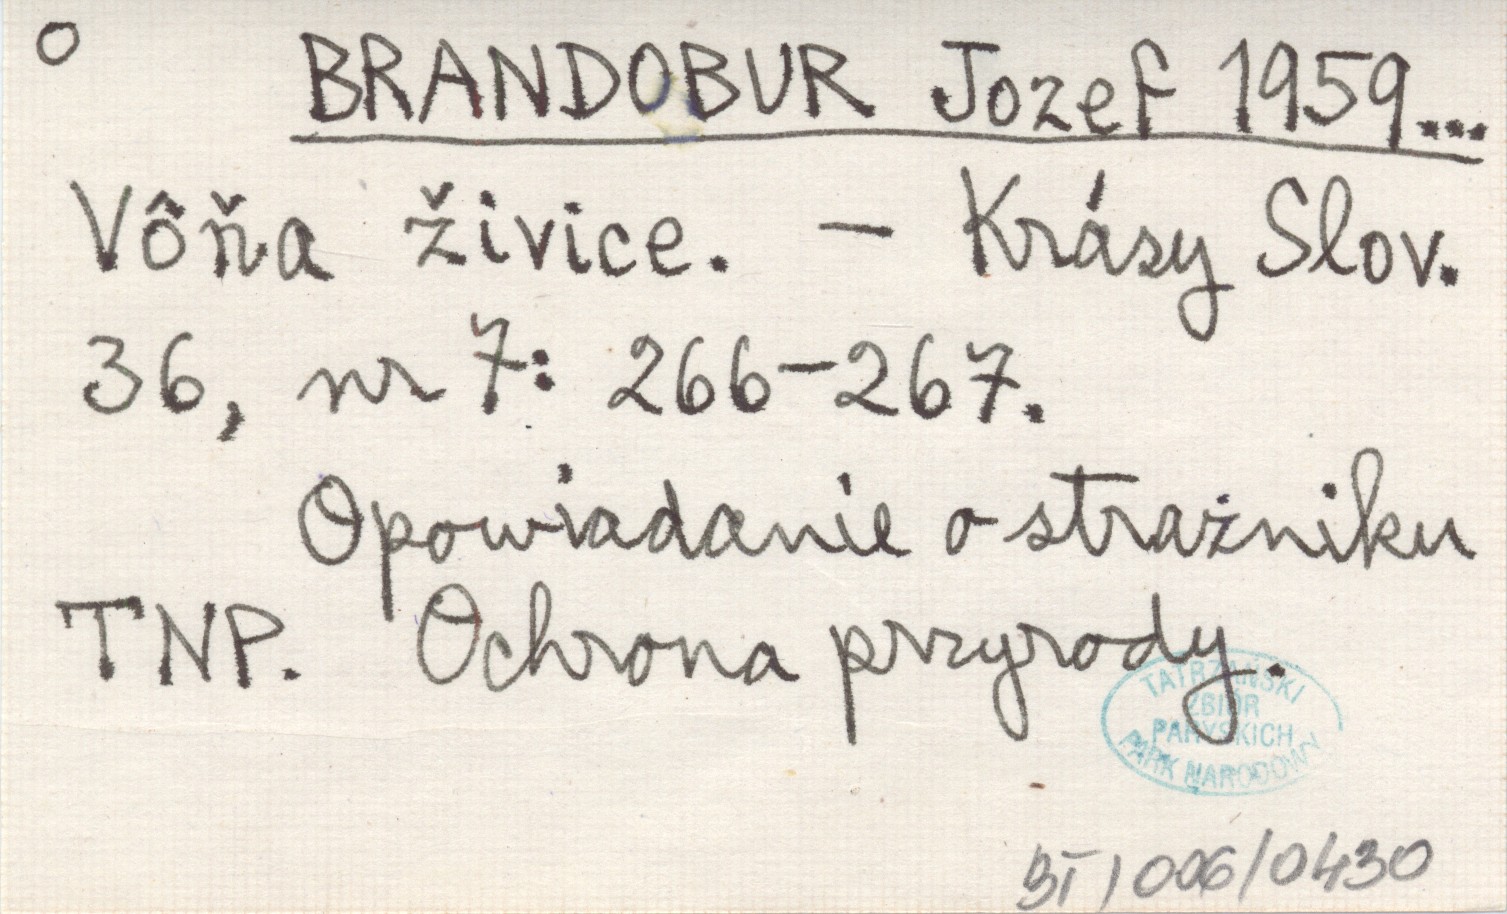 O BRANDOBUR Jozef 1959...
Vôňa živice. - Krásy Slov.
36, nr 7: 266-267.
Opowiadanie o strażniku
TNP. Ochrona przyrody.
TATRZAŃSKI
ZBIÓR
PARYSKICH
PARK NARODOWY
BT/006/0430